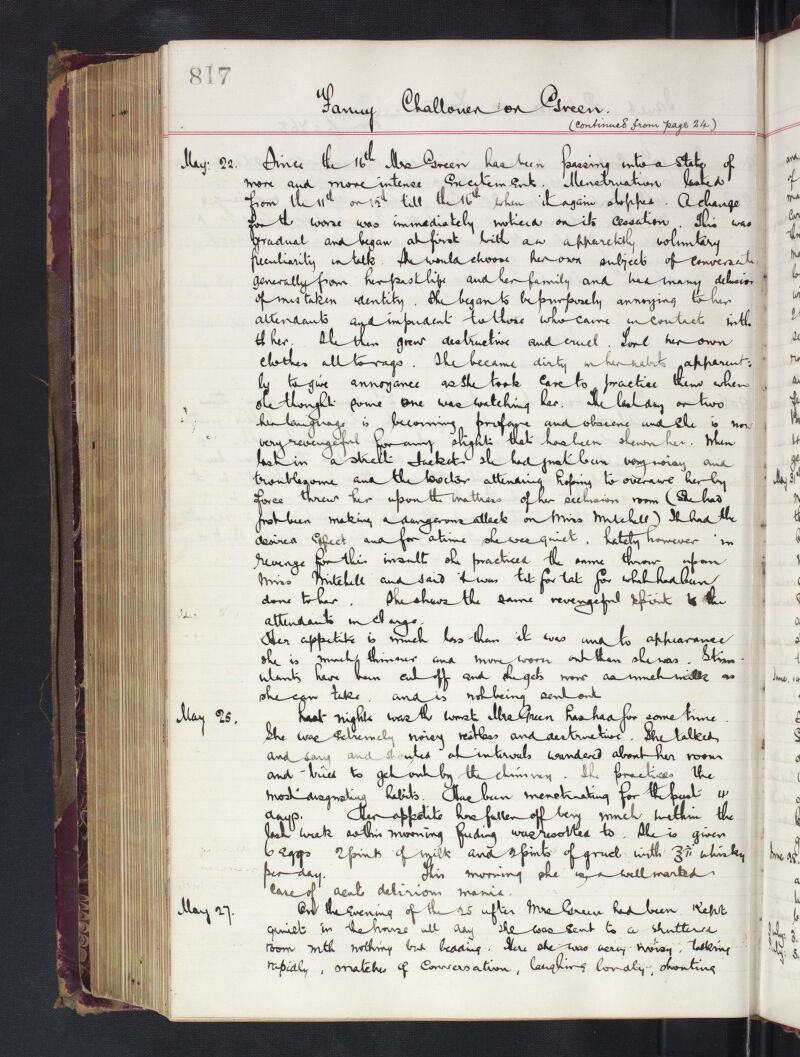 817
Fanny Challoner or Green.
(continued from page 24.)
May. 22. Since the 16th Mrs Green has been passing into a state of
more and more intense Excitement. Menstruation lasted
from the 11th or 12th till the 16th when it again stopped. A change
for th worse was immediately noticed on its cessation. This was
gradual and began at first with an apparently voluntary
peculiarity in talk. She would choose her own subjects of conversati
generally from her past life and her family and had many delusion
of mistaken identity. She began to be purposely annoying to her
attendants and impudent to those who came in contact with
th her. She then grew destructive and cruel. Tore her own
clothes all to rags. She became dirty in her habits apparent-
ly to give annoyance as she took care to practise them when
she thought some one was watching her. The last day or two
her language is becoming profane and obscene and she is now
very revengeful for any slight that has been shewn her. When
last in a strait Jacket she had just been very noisy and
troublesome and the Doctor attending hoping to overawe her by
force threw her upon the mattress of her seclusion room (She had
just been making a dangerous attack on Miss Mitchell) It had the
desired effect and for a time she was quiet. Lately however in
revenge for this insult she practised the same throw upon
Miss Mitchell and said it was tit for tat for what had been
done to her. She shews the same revengeful spirit to the
attendants in charge.
Her appetite is much less than it was and to appearance
she is much thinner and more worn out than she was. Stim-
ulants have been cut off and she gets now as much milk as
she can take. and is not being sent out
May 25. Last night was th worst Mrs Green has had for some time.
She was extremely noisy restless and destructive. She talked
and sang and shouted at intervals wandered about her room
and tried to get out by the chimney. She practices the
most disgusting habits. Has been menstruating for the past 4
days. Her appetite has fallen off very much within the
last week so this morning feeding was resorted to. She is given
6 eggs 2 pints of milk and 2 pints of gruel with ℥vi whisky
per day. This morning she is a well marked
case of acute delirious mania.
May 27. On the Evening of the 25 after Mrs Green had been kept
quiet in the house all day she was sent to a shuttered
room with nothing but bedding. Here she was very noisy, talking
rapidly, snatches of conversation, laughing loudly, shouting